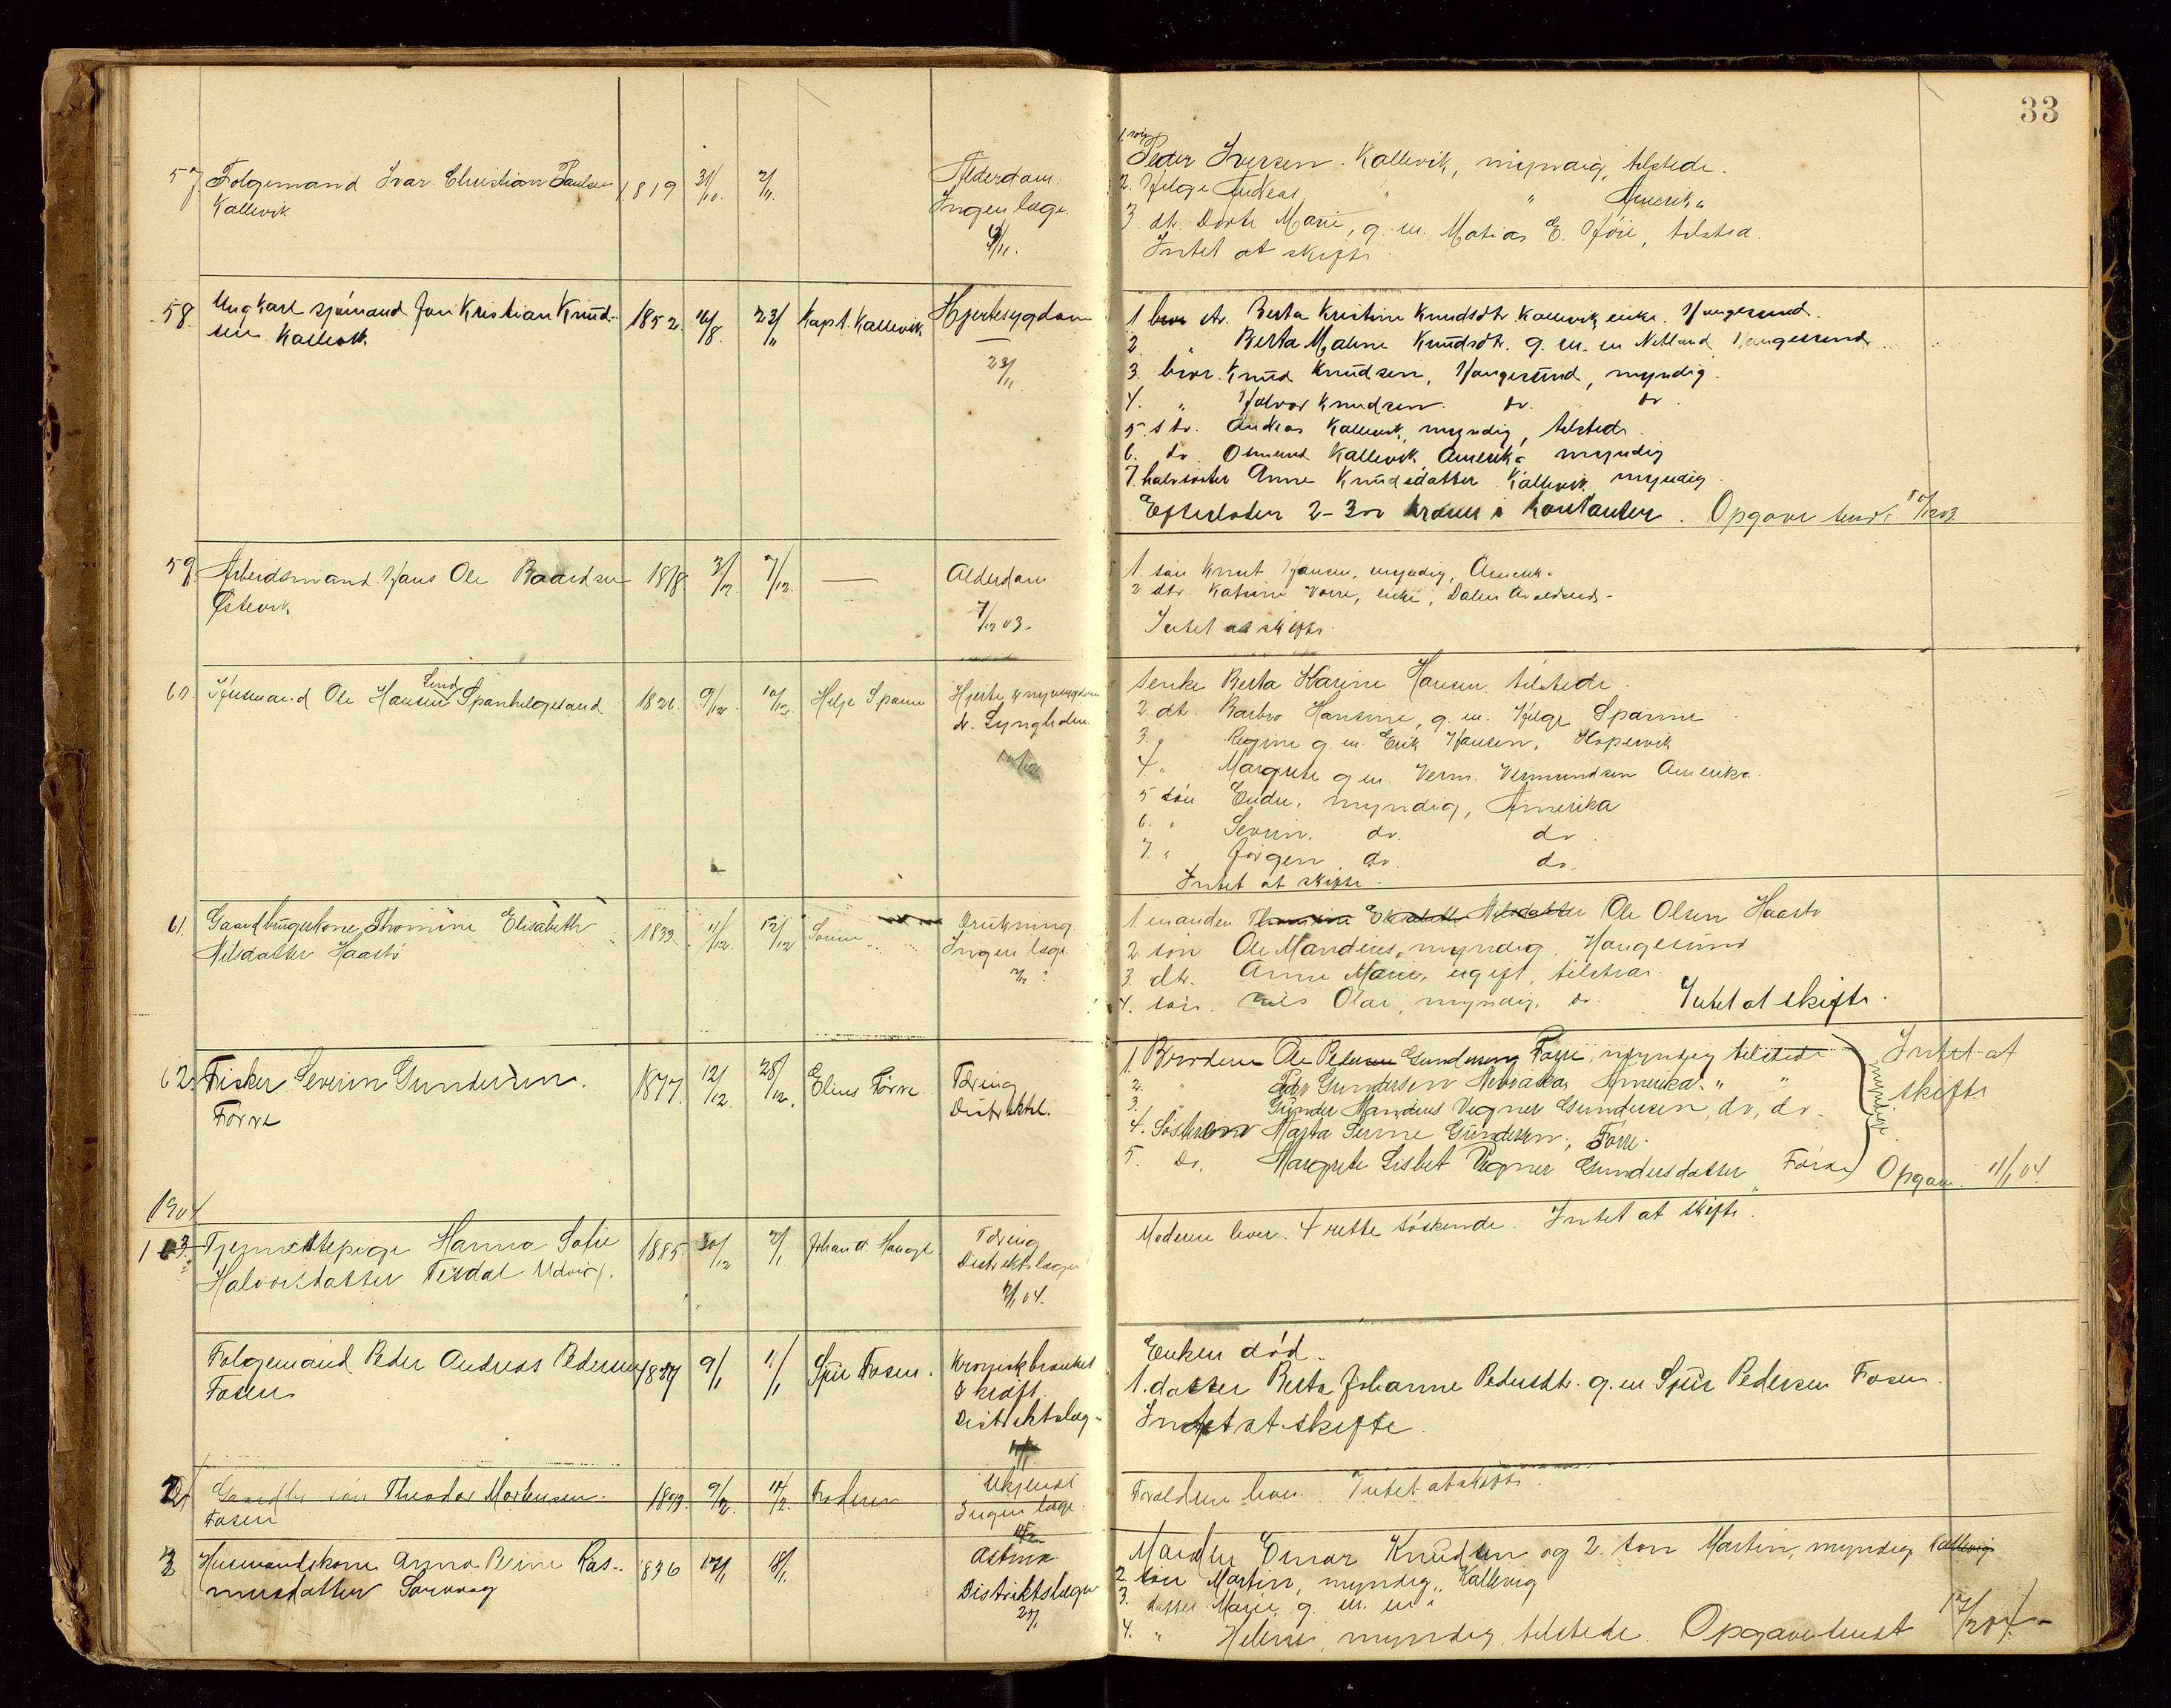 33
57. Folgemand Ivar Christian Paulsen 1819 31/10. 2/11. Alderdom
Kallevik Ingen læge.
1. søn Peder Iversen Kallevik, myndig, tilstede.
2. Helge Andreas " " Amerika
3. dtr. Dorte Marie, g. m. Matias E. Høie, tilsted.
Intet at skifte.
58. Ungkarl sjømand Jon Kristian Knud- 1852 16/8. 23/11 Kapt. Kallevik Hjertesygdom
sen Kallevik 23/11.
1 str. Berta Kristine Knudsdtr. Kallevik enke. Haugesund.
2. " Berta Maline Knudsdtr. g. m. en Netland Haugesund
3. bror. Knud Knudsen, Haugesund, myndig.
4. " Halvor Knudsen. do. do.
5. Andreas Kallevik, myndig, tilstede.
6. do. Osmund Kallevik Amerika myndig
7. halvsøster Anne Knudsdatter Kallevik myndig.
Efterlader 2-300 kroner i kontanter. Opgave sendt
59. Arbeidsmand Hans Ole Baardsen 1818 3/12. 7/12. — Alderdom
Østevik 7/12 03.
1. søn Knut Hansen, myndig, Amerika
2 dtr. Katrine enke, Dalen
Intet at skifte.
60. Husmand Ole Hansen Lind Spanhelgesand 1826. 9/12. 10/12. Helge Spanne Hjerte & nyresygdom
dr. Lyngholm
1 enke Berta Karine Hansen. tilstede.
2. dt. Barbro Hansine, g. m. Helge Spanne
3. " Regine g. m. Erik Hansen, Kopervik
4. " Margrete g m. Verm. Vermundsen Amerika.
5 søn Endre, myndig, Amerika
6. " Severin. do. do.
7. " Jørgen do. do.
Intet at skifte.
61. Gaardbrugerkone Thomine Elisabeth 1833. 11/12. 12/12 Sønnen Drukning
Nilsdatter Haastø Ingen læge
1. manden Thomine Elisabeth Nilsdatter Ole Olsen Haastø
2. søn Ole Mandius, myndig, Haugesund
3. dtr. Anne Marie, ugift, tilstede.
4. søn. Nils Olai, myndig, do. Intet at skifte.
62. Fisker Severin Gundersen. 1877. 12/12. 28/12. Elius Førre Tæring
Førre Distriktsl.
1. Broderen Ole Gundersen Førre, myndig tilstede
2. " Peder Gundersen Nebraska, Amerika. " "
3. " Gunder Mandius Vegner Gundersen, do, do.
4. Søsteren Marta Serine Gundersen, Førre.
5. Do. Margrete Lisbet Vegner Gundersdatter Førre
myndige
Intet at
skifte
Opgave 11/1 04.
1904
1 Tjenestepige Hanna Sofie 1885. 30/12 2/1 Johan A. Hauge Tæring
Halvorsdatter Tisdal Udvik. Distriktslægen
2/1 04.
Moderen lever. 4 rette søskende. Intet at skifte.
Folgemand Peder Andreas Pedersen 9/1 11/1 Sjur Fosen. Kronisk bronkit
Fosen & kræft
Distriktslæg-
Enken død.
1. datter Berta Johanne Pedersdtr. g. m. Sjur Pedersen Fosen.
Intet at skifte.
Gaardbr søn Theodor Mortensen. 1899. 9/2. 11/2. Faderen Ukjendt
Fosen Ingen læge.
Forældrene lever. Intet at skifte.
3 Husmandskone Anna Perine Ras- 1836 17/1 18/1 Astma
musdatter Sørvaag Distriktslægen
27/1
Manden Omar Knudsen og 2. søn Martin, myndig Kallevig
2. søn Martin, myndig, Kallevig
3. datter Marie, g. m. en
4. " Helene, myndig, tilstede. Opgave sendt